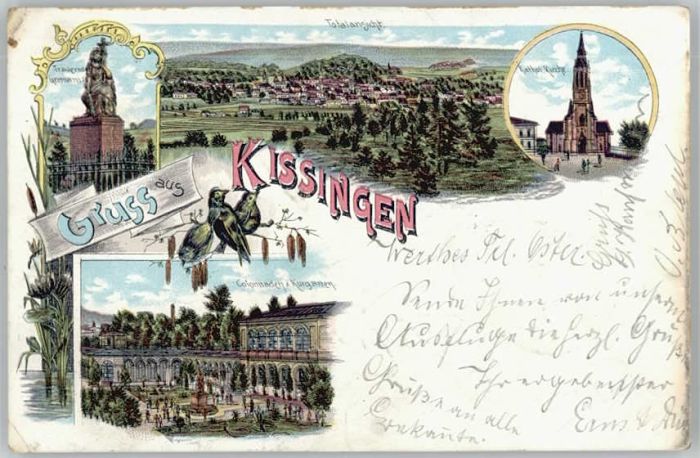 Totalansicht.
Trauernde
Germania
Kathol. Kirche
Gruss aus
KISSINGEN
Colonnaden & Kurgarten
Werthes Frl. Oster.
Sende Ihnen von unserem
Ausfluge die herzl. Grüße
Ihr ergebenster
Ernst
Grüße an alle
Bekannte.
Gruß